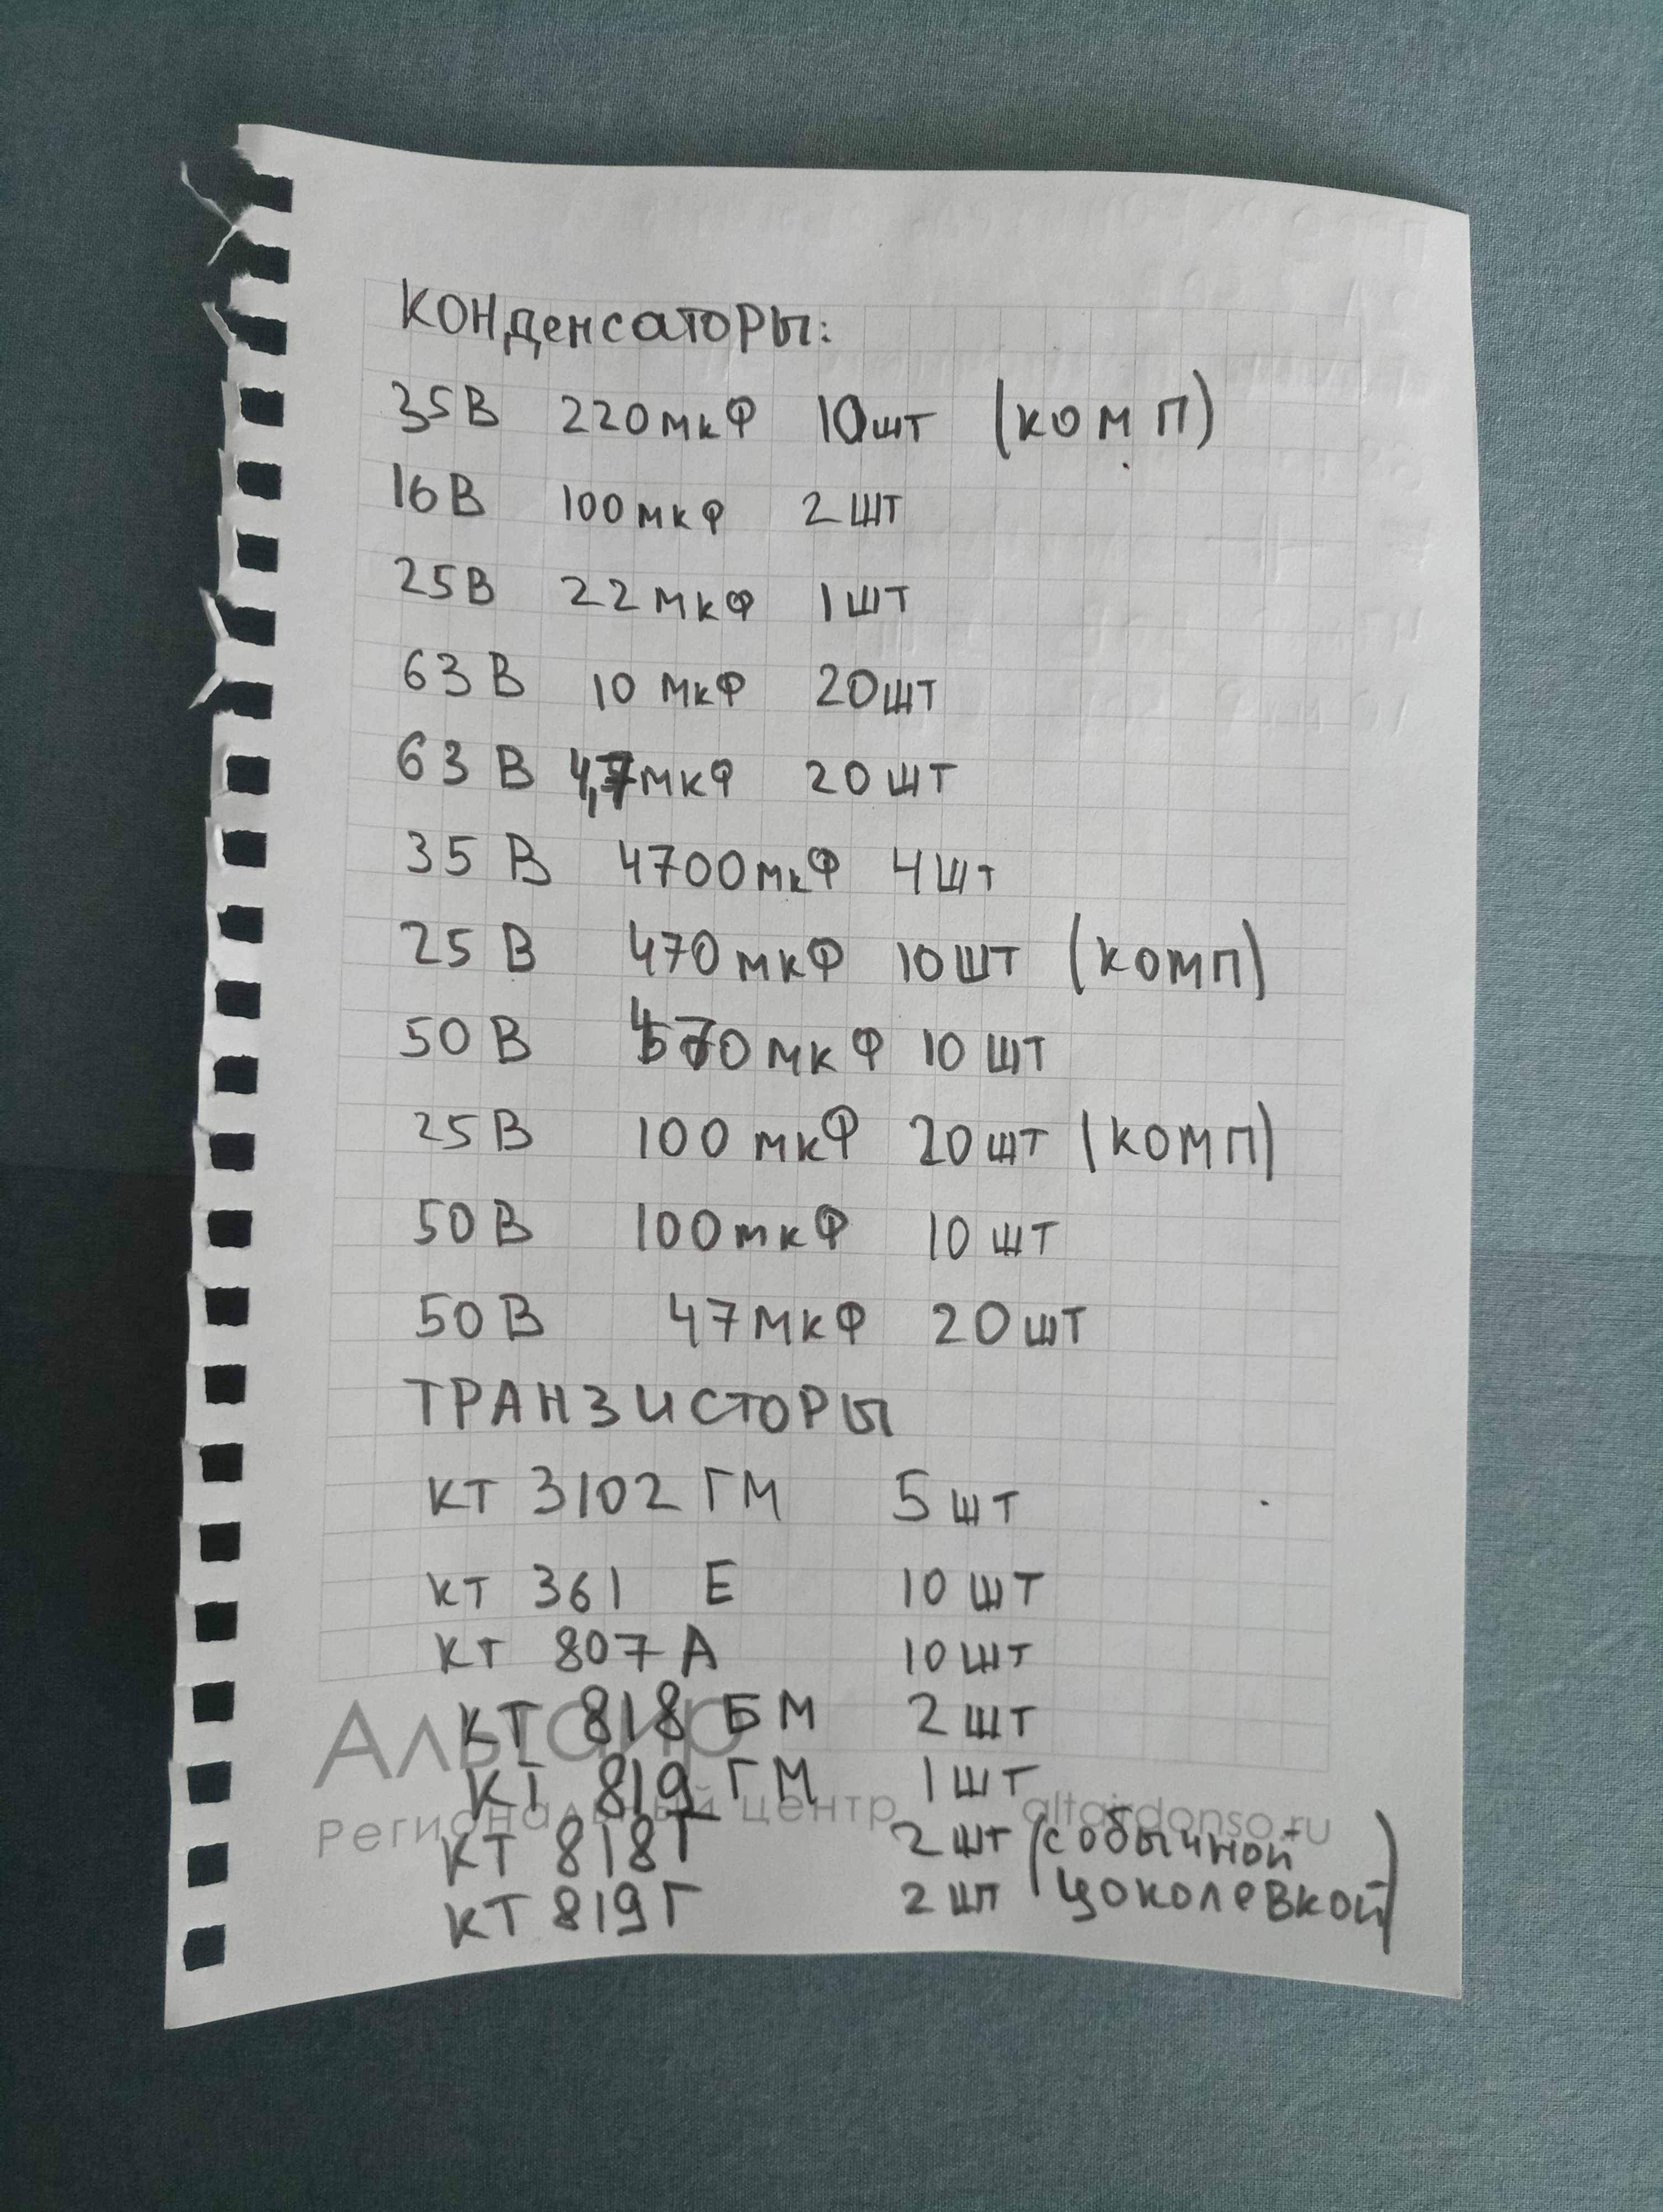 Конденсаторы:
35В 220мкФ 10шт (комп)
16В 100мкФ 2шт
25В 22мкФ 1шт
63В 10мкФ 20шт
63В 4,7мкФ 20шт
35В 4700мкФ 4шт
25В 470мкФ 10шт (комп)
50В 470мкФ 10шт
25В 100мкФ 20шт (комп)
50В 100мкФ 10шт
50В 47мкФ 20шт
ТРАНЗИСТОРЫ
КТ 3102 ГМ 5шт
КТ 361 Е 10шт
КТ 807 А 10шт
КТ 818 БМ 2шт
Альтаир
КТ 819 ГМ 1шт
Региональный центр altairdonso.ru
КТ 818Г 2шт (с обычной
КТ 819Г 2шт цоколевкой)